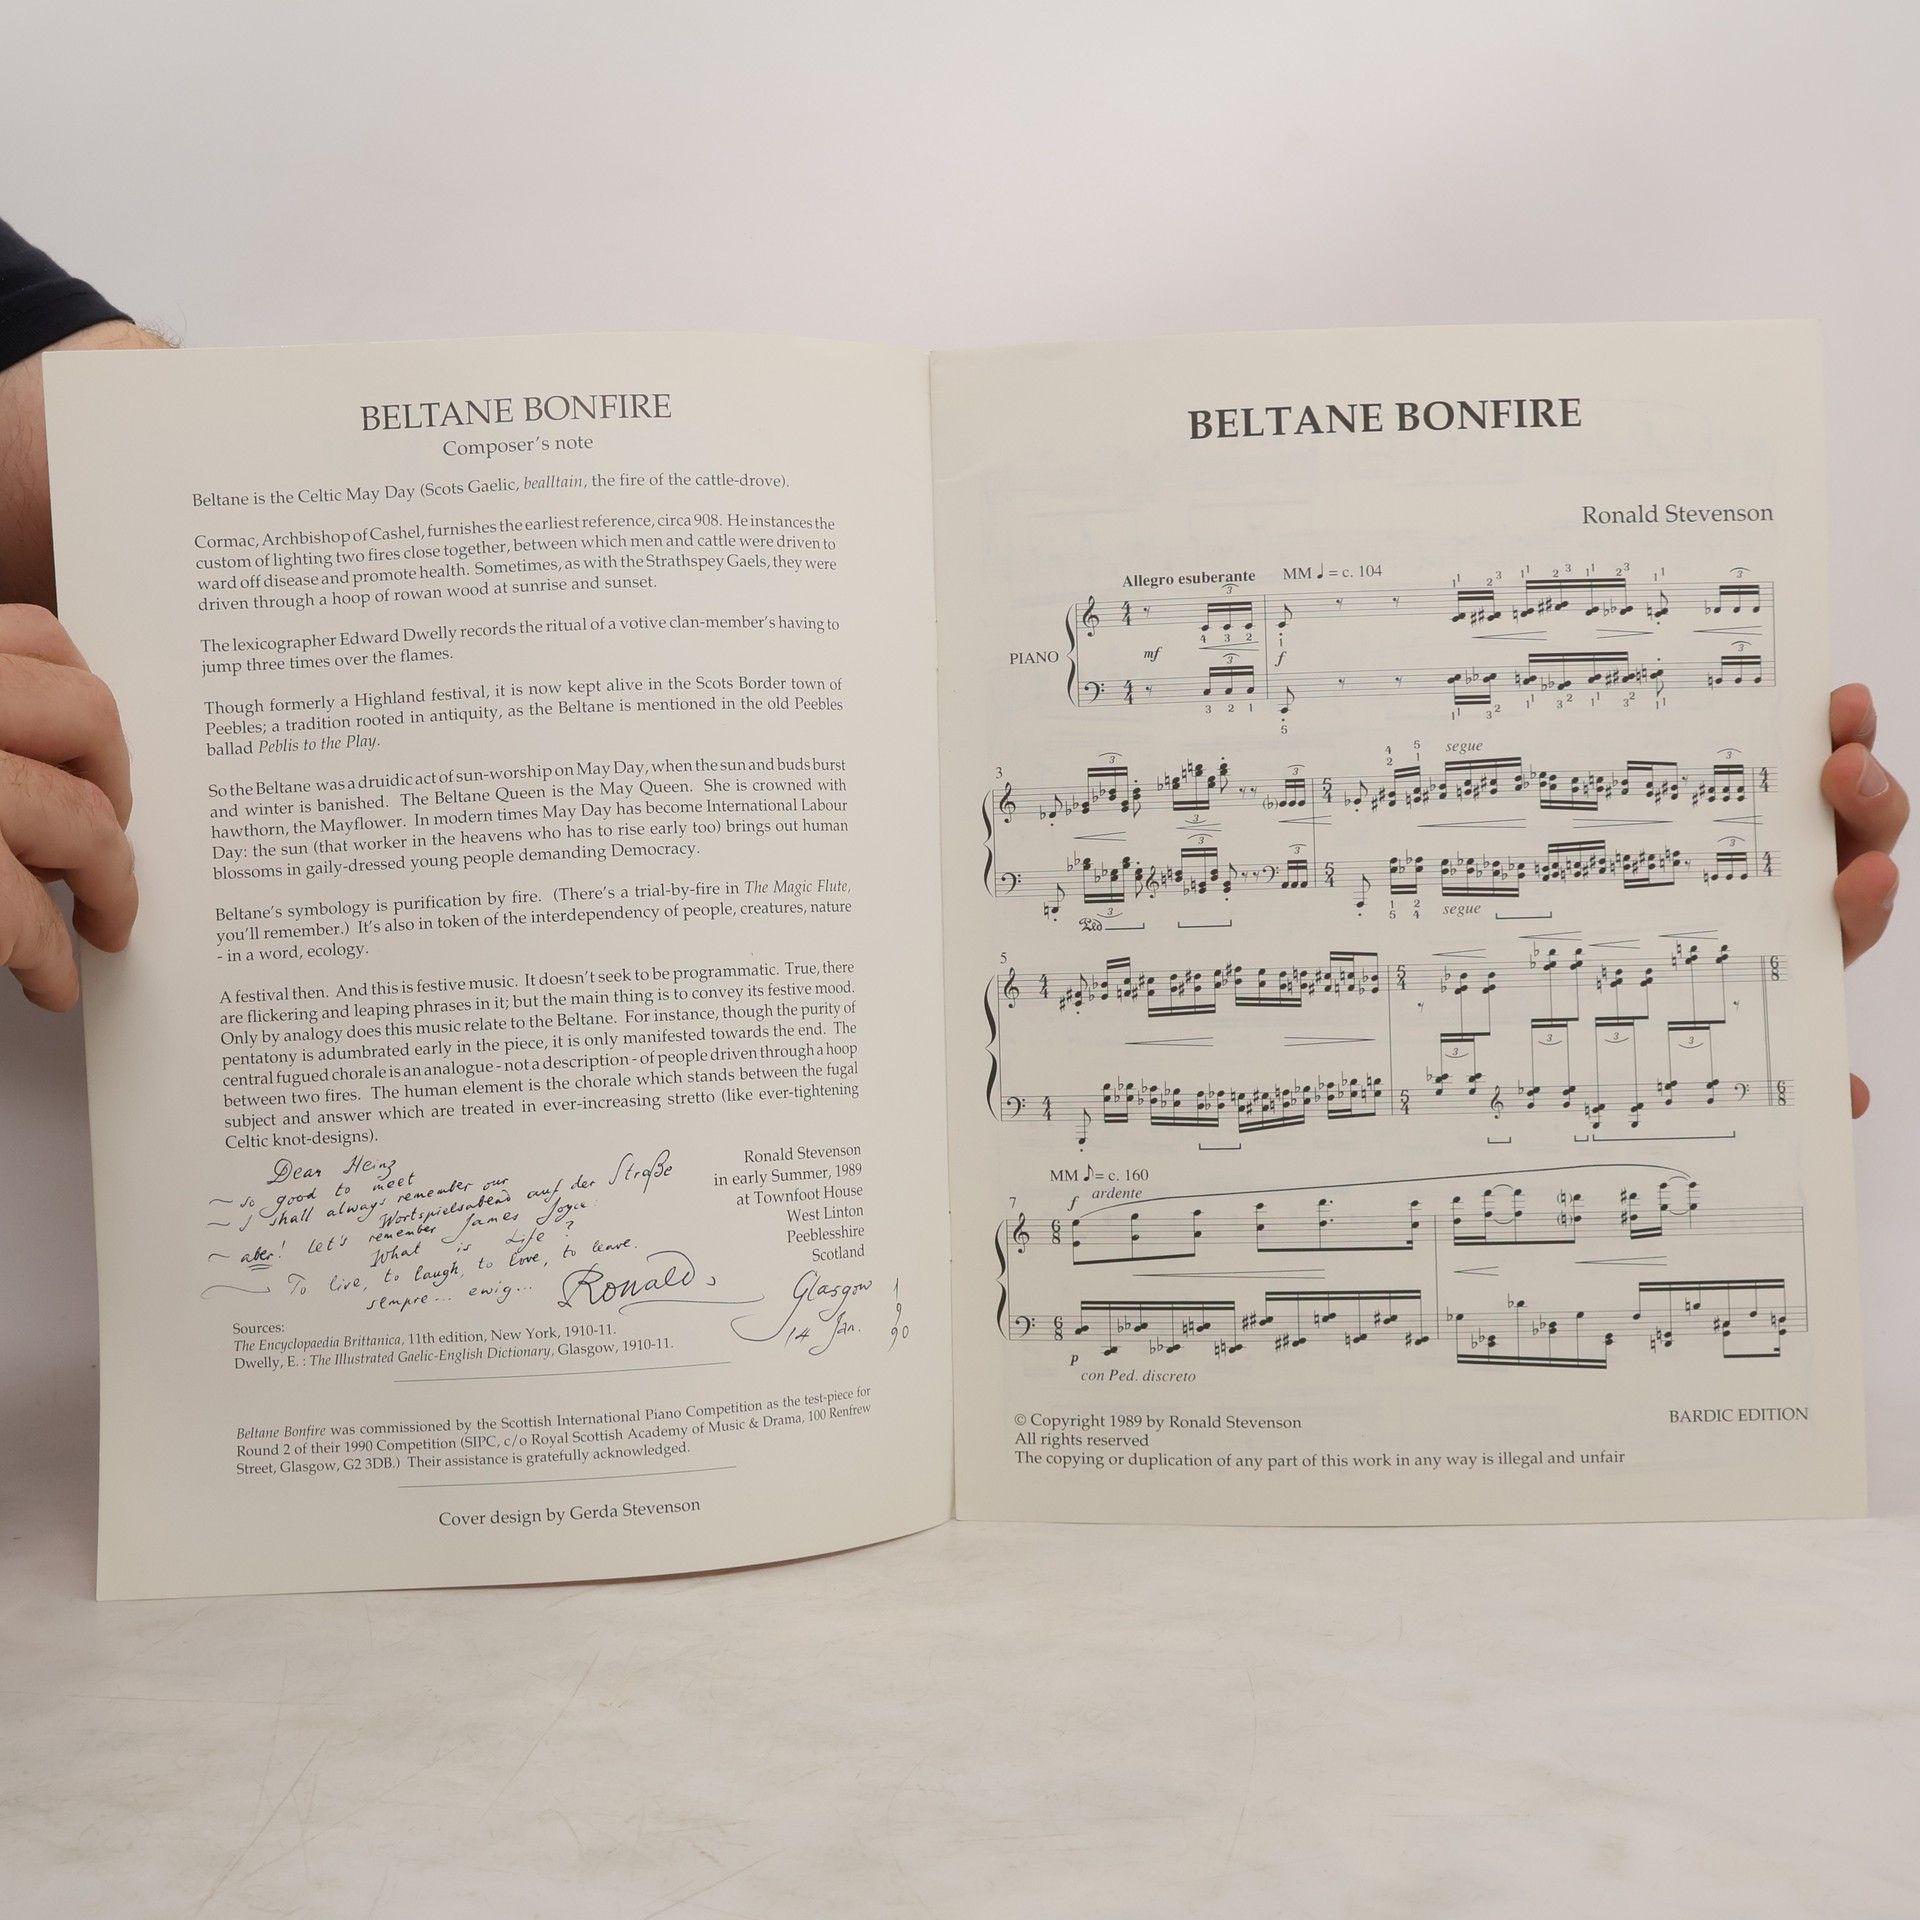 BELTANE BONFIRE
Composer's note
Beltane is the Celtic May Day (Scots Gaelic, bealltain, the fire of the cattle-drove).
Cormac, Archbishop of Cashel, furnishes the earliest reference, circa 908. He instances the
custom of lighting two fires close together, between which men and cattle were driven to
ward off disease and promote health. Sometimes, as with the Strathspey Gaels, they were
driven through a hoop of rowan wood at sunrise and sunset.
The lexicographer Edward Dwelly records the ritual of a votive clan-member's having to
jump three times over the flames.
Though formerly a Highland festival, it is now kept alive in the Scots Border town of
Peebles; a tradition rooted in antiquity, as the Beltane is mentioned in the old Peebles
ballad Peblis to the Play.
So the Beltane was a druidic act of sun-worship on May Day, when the sun and buds burst
and winter is banished. The Beltane Queen is the May Queen. She is crowned with
hawthorn, the Mayflower. In modern times May Day has become International Labour
Day: the sun (that worker in the heavens who has to rise early too) brings out human
blossoms in gaily-dressed young people demanding Democracy.
Beltane's symbology is purification by fire. (There's a trial-by-fire in The Magic Flute,
you'll remember.) It's also in token of the interdependency of people, creatures, nature
- in a word, ecology.
A festival then. And this is festive music. It doesn't seek to be programmatic. True, there
are flickering and leaping phrases in it; but the main thing is to convey its festive mood.
Only by analogy does this music relate to the Beltane. For instance, though the purity of
pentatony is adumbrated early in the piece, it is only manifested towards the end. The
central fugued chorale is an analogue - not a description - of people driven through a hoop
between two fires. The human element is the chorale which stands between the fugal
subject and answer which are treated in ever-increasing stretto (like ever-tightening
Celtic knot-designs).
Ronald Stevenson
in early Summer, 1989
at Townfoot House
West Linton
Peeblesshire
Scotland
Dear Heinz
~ so good to meet
~ I shall always remember our
Wortspielsabend auf der Straße
~ aber! let's remember James Joyce:
What is Life?
~ To live, to laugh, to love, to leave.
sempre... ewig...
Ronald
Glasgow
14 Jan.
1990
Sources:
The Encyclopaedia Brittanica, 11th edition, New York, 1910-11.
Dwelly, E. : The Illustrated Gaelic-English Dictionary, Glasgow, 1910-11.
Beltane Bonfire was commissioned by the Scottish International Piano Competition as the test-piece for
Round 2 of their 1990 Competition (SIPC, c/o Royal Scottish Academy of Music & Drama, 100 Renfrew
Street, Glasgow, G2 3DB.) Their assistance is gratefully acknowledged.
Cover design by Gerda Stevenson
BELTANE BONFIRE
Ronald Stevenson
Allegro esuberante MM ♩ = c. 104
PIANO
mf
f
3
segue
segue
5
MM ♪ = c. 160
7
f ardente
p
con Ped. discreto
© Copyright 1989 by Ronald Stevenson
All rights reserved
The copying or duplication of any part of this work in any way is illegal and unfair
BARDIC EDITION